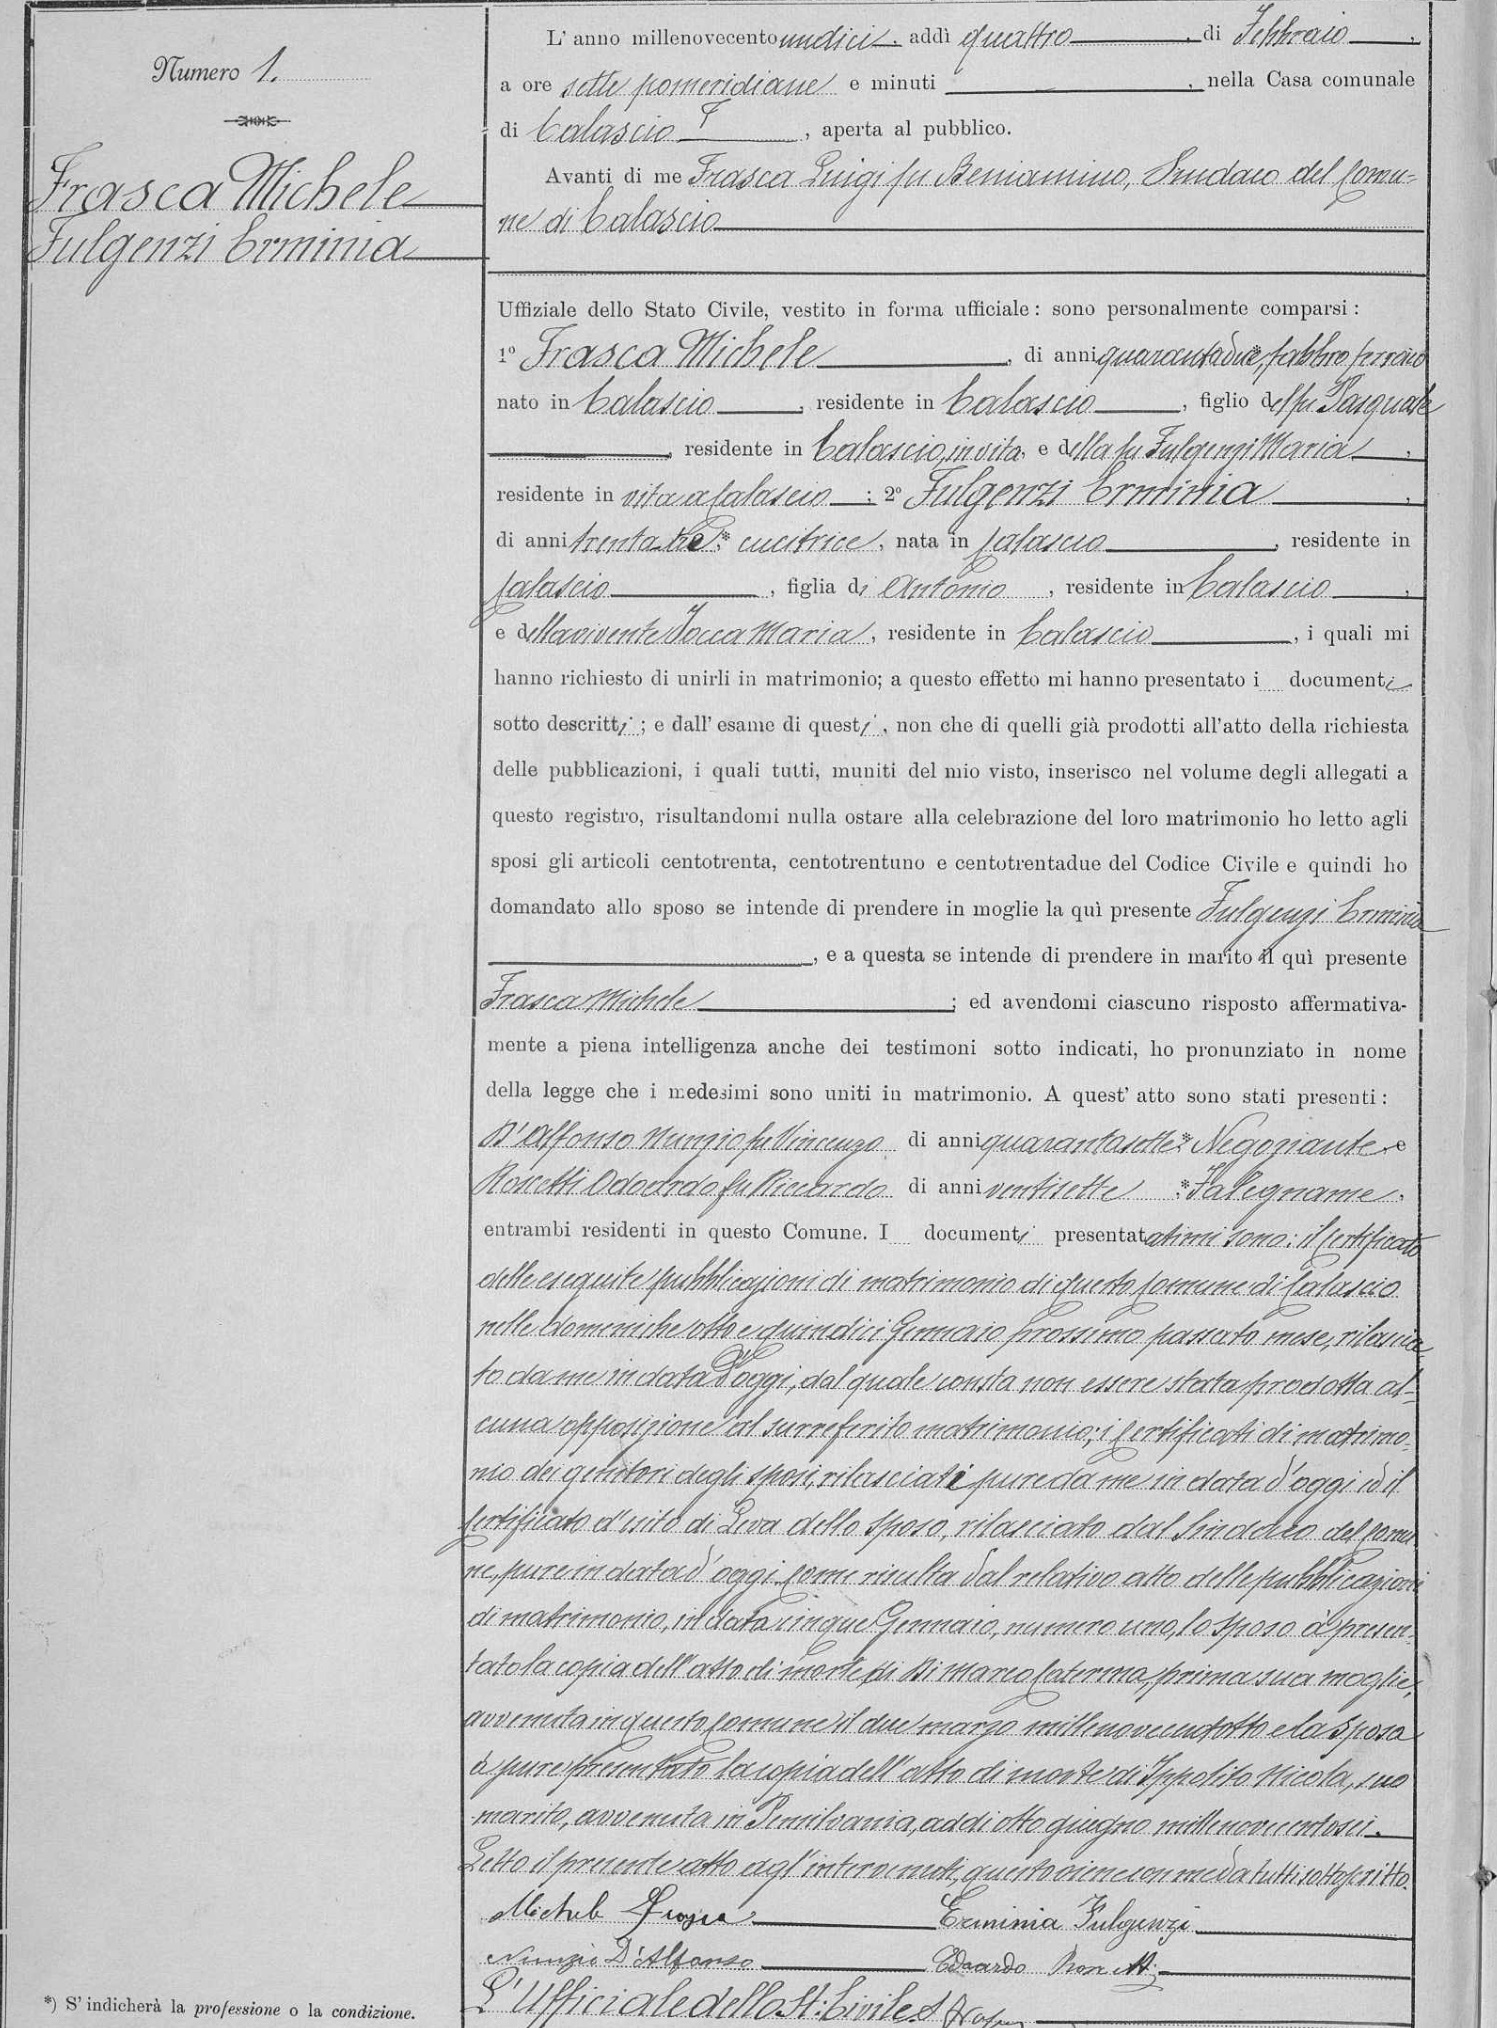 Numero 1.
Frasca Michele
Fulgenzi Erminia
L' anno millenovecento undici, addì quattro, di Febbraio,
a ore sette pomeridiane e minuti , nella Casa comunale
di Calascio , aperta al pubblico.
Avanti di me Frasca Luigi fu Beniamino, Sindaco del Comu=
ne di Calascio
Uffiziale dello Stato Civile, vestito in forma ufficiale: sono personalmente comparsi:
1º Frasca Michele, di anni quarantadue,* fabbro ferraio
nato in Calascio, residente in Calascio, figlio del fu Pasquale
, residente in Calascio, in vita, e della fu Fulgenzi Maria,
residente in vita a Calascio; 2º Fulgenzi Erminia,
di anni trentatre,* cucitrice, nata in Calascio, residente in
Calascio, figlia di Antonio, residente in Calascio,
e della vivente Jocca Maria, residente in Calascio, i quali mi
hanno richiesto di unirli in matrimonio; a questo effetto mi hanno presentato i documenti
sotto descritti; e dall' esame di questi, non che di quelli già prodotti all'atto della richiesta
delle pubblicazioni, i quali tutti, muniti del mio visto, inserisco nel volume degli allegati a
questo registro, risultandomi nulla ostare alla celebrazione del loro matrimonio ho letto agli
sposi gli articoli centotrenta, centotrentuno e centotrentadue del Codice Civile e quindi ho
domandato allo sposo se intende di prendere in moglie la quì presente Fulgenzi Erminia
, e a questa se intende di prendere in marito il quì presente
Frasca Michele; ed avendomi ciascuno risposto affermativa-
mente a piena intelligenza anche dei testimoni sotto indicati, ho pronunziato in nome
della legge che i medesimi sono uniti in matrimonio. A quest' atto sono stati presenti:
D'Alfonso Nunzio fu Vincenzo di anni quarantasette,* Negoziante e
Roscetti Odoardo fu Riccardo di anni ventisette,* Falegname,
entrambi residenti in questo Comune. I documenti presentatatimi sono: il Certificato
delle eseguite pubblicazioni di matrimonio di questo Comune di Calascio
nelle domeniche otto e quindici Gennaio prossimo passato mese, rilascia=
to da me in data d'oggi, dal quale consta non essere stata prodotta al=
cuna opposizione al surreferito matrimonio; i Certificati di matrimo=
nio dei genitori degli sposi, rilasciati pure da me in data d'oggi ed il
Certificato d'esito di Leva dello sposo, rilasciato dal Sindaco del Comu
ne, pure in data d'oggi. Come risulta dal relativo atto delle pubblicazioni
di matrimonio, in data cinque Gennaio, numero uno, lo sposo à presen=
tato la copia dell'atto di morte di Di Marco Caterina, prima sua moglie,
avvenuta in questo Comune il due marzo millenovecentotto e la sposa
à pure presentato la copia dell'atto di morte di Ippolito Nicola, suo
marito, avvenuta in Pensilvania, addì otto giugno millenovecentosei.
Letto il presente atto agl'intervenuti, questo viene con me da tutti sottoscritto.
Michele Frasca Erminia Fulgenzi
Nunzio D'Alfonso Edoardo Roscetti
L'Ufficiale dello St: Civile
*) S' indicherà la professione o la condizione.